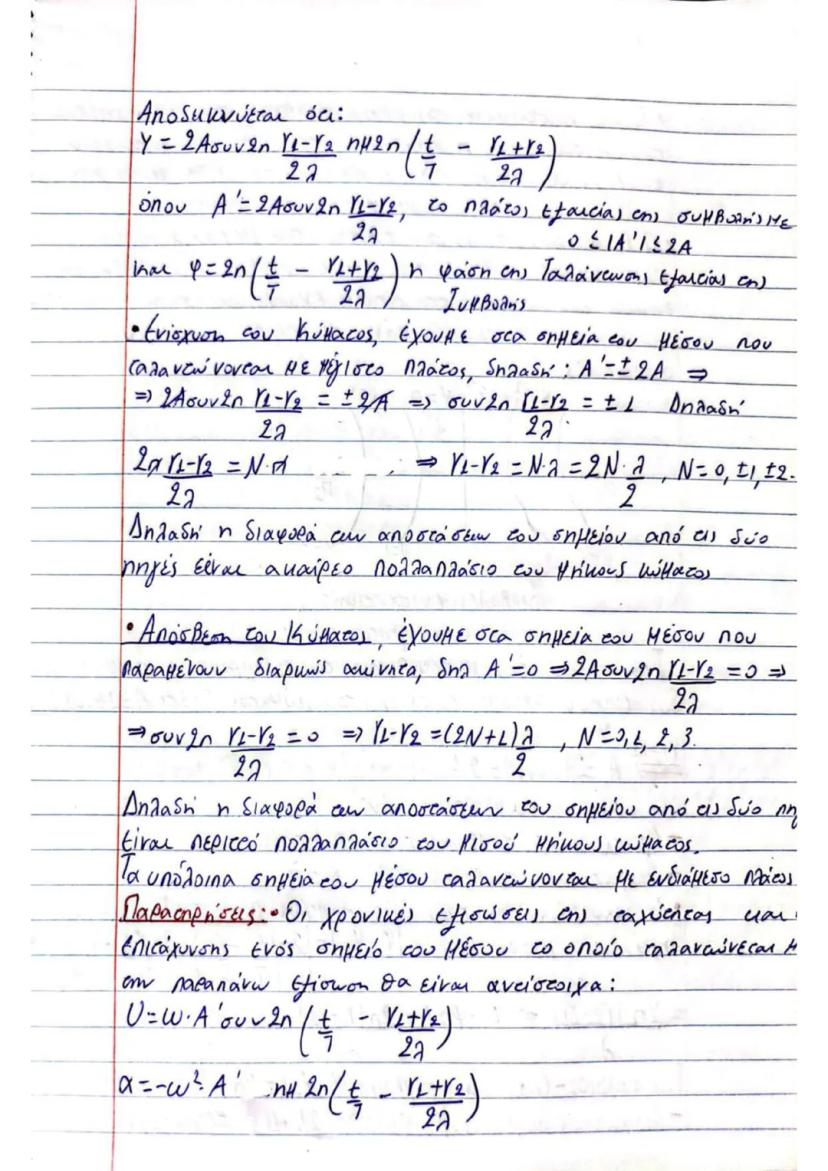 Αποδεικνύεται ότι:
Υ = 2Aσυν2π (r1-r2)/2λ ημ2π (t/T - (r1+r2)/2λ)
όπου A' = 2Aσυν2π (r1-r2)/2λ, το πλάτος εξαιτίας της συμβολής με
0 ≤ |A'| ≤ 2A
και φ = 2π (t/T - (r1+r2)/2λ) η φάση της Ταλάντωσης εξαιτίας της
Συμβολής
• Ενίσχυση του Κύματος, έχουμε στα σημεία του μέσου που
ταλαντώνονται με μέγιστο πλάτος, δηλαδή: A' = ± 2A ⇒
⇒ 2Aσυν2π (r1-r2)/2λ = ± 2A ⇒ συν2π (r1-r2)/2λ = ± 1 Δηλαδή
2π (r1-r2)/2λ = N·π ⇒ r1-r2 = N·λ = 2N·λ/2, N=0, ±1, ±2.
Δηλαδή η διαφορά των αποστάσεων του σημείου από τις δύο
πηγές είναι ακαίρεο πολλαπλάσιο του μήκους κύματος
• Απόσβεση του Κύματος, έχουμε στα σημεία του μέσου που
παραμένουν διαρκώς ακίνητα, δηλ A' = 0 ⇒ 2Aσυν2π (r1-r2)/2λ = 0 ⇒
⇒ συν2π (r1-r2)/2λ = 0 ⇒ r1-r2 = (2N+1) λ/2, N=0, 1, 2, 3.
Δηλαδή η διαφορά των αποστάσεων του σημείου από τις δύο πη
είναι περιττό πολλαπλάσιο του μισού μήκους κύματος.
Τα υπόλοιπα σημεία του μέσου ταλαντώνονται με ενδιάμεσο πλάτος
Παρατηρήσεις: • Οι χρονικές εξισώσεις της ταχύτητας και
επιτάχυνσης ενός σημείο του μέσου το οποίο ταλαντώνεται μ
την παραπάνω εξίσωση θα είναι αντίστοιχα:
U = ω·A' συν2π (t/T - (r1+r2)/2λ)
α = -ω²·A' ημ2π (t/T - (r1+r2)/2λ)